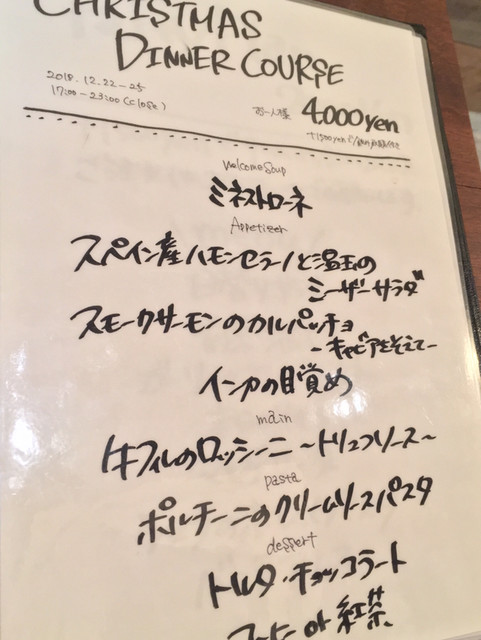 CHRISTMAS
DINNER COURSE
2018.12.22-25
17:00-23:00(close) お一人様 4000yen
welcome soup
ミネストローネ
Appetizer
スペイン産ハモンセラーノと温玉の
シーザーサラダ
スモークサーモンのカルパッチョ
-キャビアをそえて-
インカの目覚め
main
牛フィレのロッシーニ～トリュフソース～
pasta
ポルチーニのクリームソースパスタ
dessert
トルタ・チョッコラート
コーヒー or 紅茶